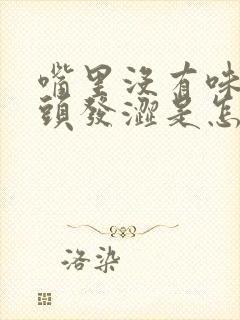 嘴里没有味
頭發澀是怎
洛染